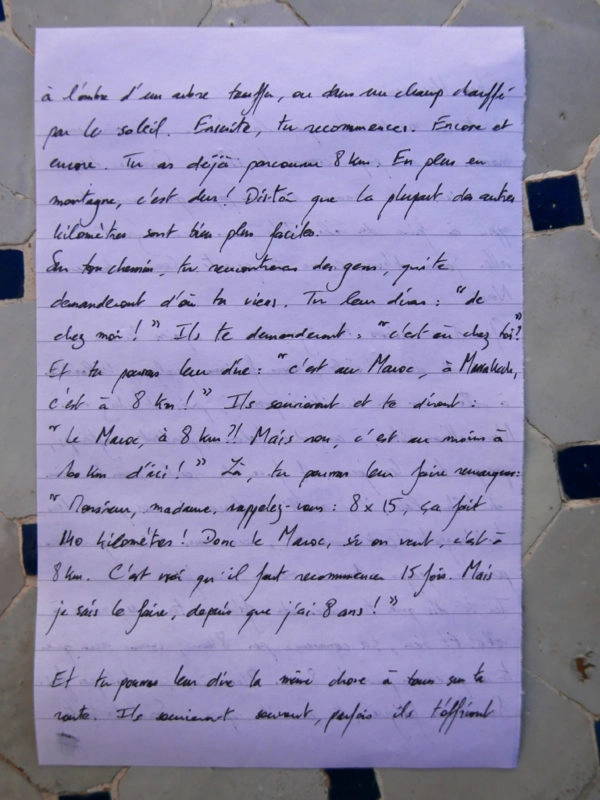 à l'ombre d'un arbre touffu, ou dans un champ chauffé
par le soleil. Ensuite, tu recommences. Encore et
encore. Tu as déjà parcouru 8 km. En plus en
montagne, c'est dur! Dis-toi que la plupart des autres
kilomètres sont bien plus faciles.
Sur ton chemin, tu rencontreras des gens, qui te
demanderont d'où tu viens. Tu leur diras : "de
chez moi ! " Ils te demanderont : "c'est où chez toi?"
Et tu pourras leur dire : "c'est au Maroc, à Marrakech,
c'est à 8 km ! " Ils souriront et te diront :
" Le Maroc, à 8 km ?! Mais non, c'est au moins à
100 km d'ici ! " Là, tu pourras leur faire remarquer :
"Monsieur, madame, rappelez-vous : 8 x 15, ça fait
140 kilomètres ! Donc le Maroc, si on veut, c'est à
8 km. C'est vrai qu'il faut recommencer 15 fois. Mais
je sais le faire, depuis que j'ai 8 ans ! "
Et tu pourras leur dire la même chose à tous sur ta
route. Ils souriront souvent, parfois ils t'offriront